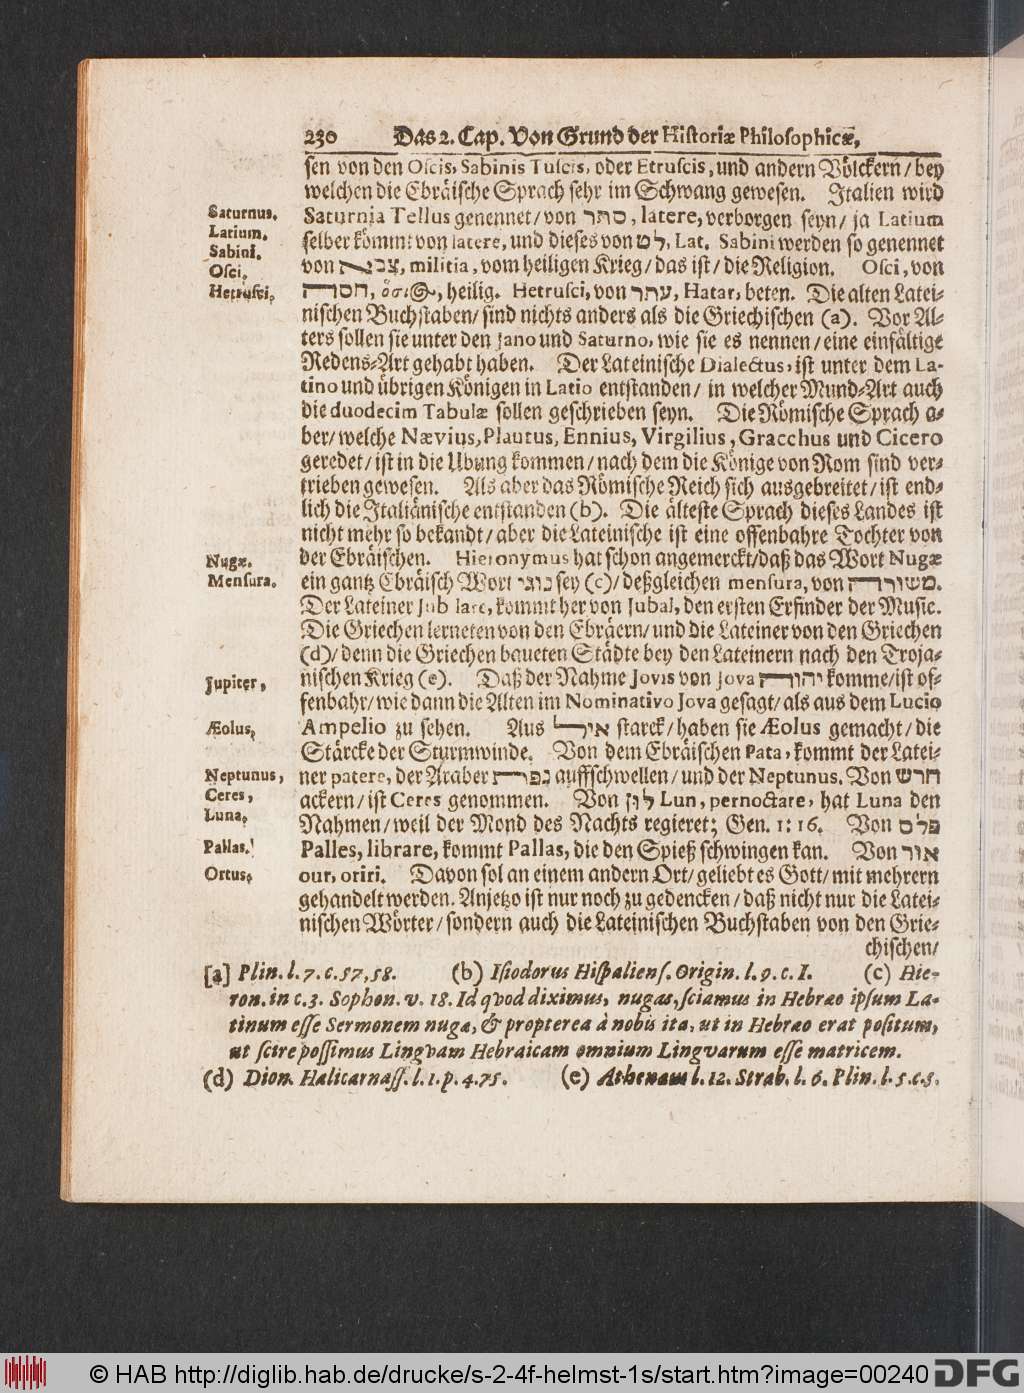 230 Das 2. Cap. Von Grund der Historiæ Philosophicæ,
sen von den Oscis, Sabinis Tuscis, oder Etruscis, und andern Völckern/ bey
welchen die Ebräische Sprach sehr im Schwang gewesen. Italien wird
Saturnus. Saturnia Tellus genennet/ von סתר, latere, verborgen seyn/ ja Latium
Latium. selber kömmt von latere, und dieses von לט, Lat. Sabini werden so genennet
Sabini. von צבא, militia, vom heiligen Krieg/ das ist/ die Religion. Osci, von
Osci,
Hetrusci, חסדה, ὅσιος, heilig. Hetrusci, von עתר, Hatar, beten. Die alten Latei-
nischen Buchstaben/ sind nichts anders als die Griechischen (a). Vor Al-
ters sollen sie unter den Jano und Saturno, wie sie es nennen/ eine einfältige
Redens-Art gehabt haben. Der Lateinische Dialectus, ist unter dem La-
tino und übrigen Königen in Latio entstanden/ in welcher Mund-Art auch
die duodecim Tabulæ sollen geschrieben seyn. Die Römische Sprach a-
ber/ welche Nævius, Plautus, Ennius, Virgilius, Gracchus und Cicero
geredet/ ist in die Ubung kommen/ nach dem die Könige von Rom sind ver-
trieben gewesen. Als aber das Römische Reich sich ausgebreitet/ ist end-
lich die Italiänische entstanden (b). Die älteste Sprach dieses Landes ist
nicht mehr so bekandt/ aber die Lateinische ist eine offenbahre Tochter von
Nugæ. der Ebräischen. Hieronymus hat schon angemerckt/ daß das Wort Nugæ
Mensura. ein gantz Ebräisch Wort נוגי sey (c)/ deßgleichen mensura, von משורה.
Der Lateiner Jubilare, kommt her von Jubal, den ersten Erfinder der Music.
Die Griechen lerneten von den Ebräern/ und die Lateiner von den Griechen
(d)/ denn die Griechen baueten Städte bey den Lateinern nach den Troja-
Jupiter, nischen Krieg (e). Daß der Nahme Jovis von Jova יהוה komme/ ist of-
fenbahr/ wie dann die Alten im Nominativo Jova gesagt/ als aus dem Lucio
Æolus, Ampelio zu sehen. Aus איל starck/ haben sie Æolus gemacht/ die
Stärcke der Sturmwinde. Von dem Ebräischen Pata, kommt der Latei-
Neptunus, ner patere, der Araber נפת auffschwellen/ und der Neptunus. Von חרש
Ceres, ackern/ ist Ceres genommen. Von לון Lun, pernoctare, hat Luna den
Luna, Nahmen/ weil der Mond des Nachts regieret; Gen. 1: 16. Von פלס
Pallas. Palles, librare, kommt Pallas, die den Spieß schwingen kan. Von אור
Ortus, our, oriri. Davon sol an einem andern Ort/ geliebt es Gott/ mit mehrern
gehandelt werden. Anjetzo ist nur noch zu gedencken/ daß nicht nur die Latei-
nischen Wörter/ sondern auch die Lateinischen Buchstaben von den Grie-
chischen/
[a] Plin. l. 7. c. 57, 58. (b) Isiodorus Hispaliens. Origin. l. 9. c. I. (c) Hie-
ron. in c. 3. Sophon. v. 18. Id qvod diximus, nugas, sciamus in Hebræo ipsum La-
tinum esse Sermonem nugæ, & propterea à nobis ita, ut in Hebræo erat positum,
ut scire possimus Lingvam Hebraicam omnium Lingvarum esse matricem.
(d) Dion. Halicarnass. l. 1. p. 4. 75. (e) Athenæus l. 12. Strab. l. 6. Plin. l. 5. c. 5.
© HAB http://diglib.hab.de/drucke/s-2-4f-helmst-1s/start.htm?image=00240 DFG